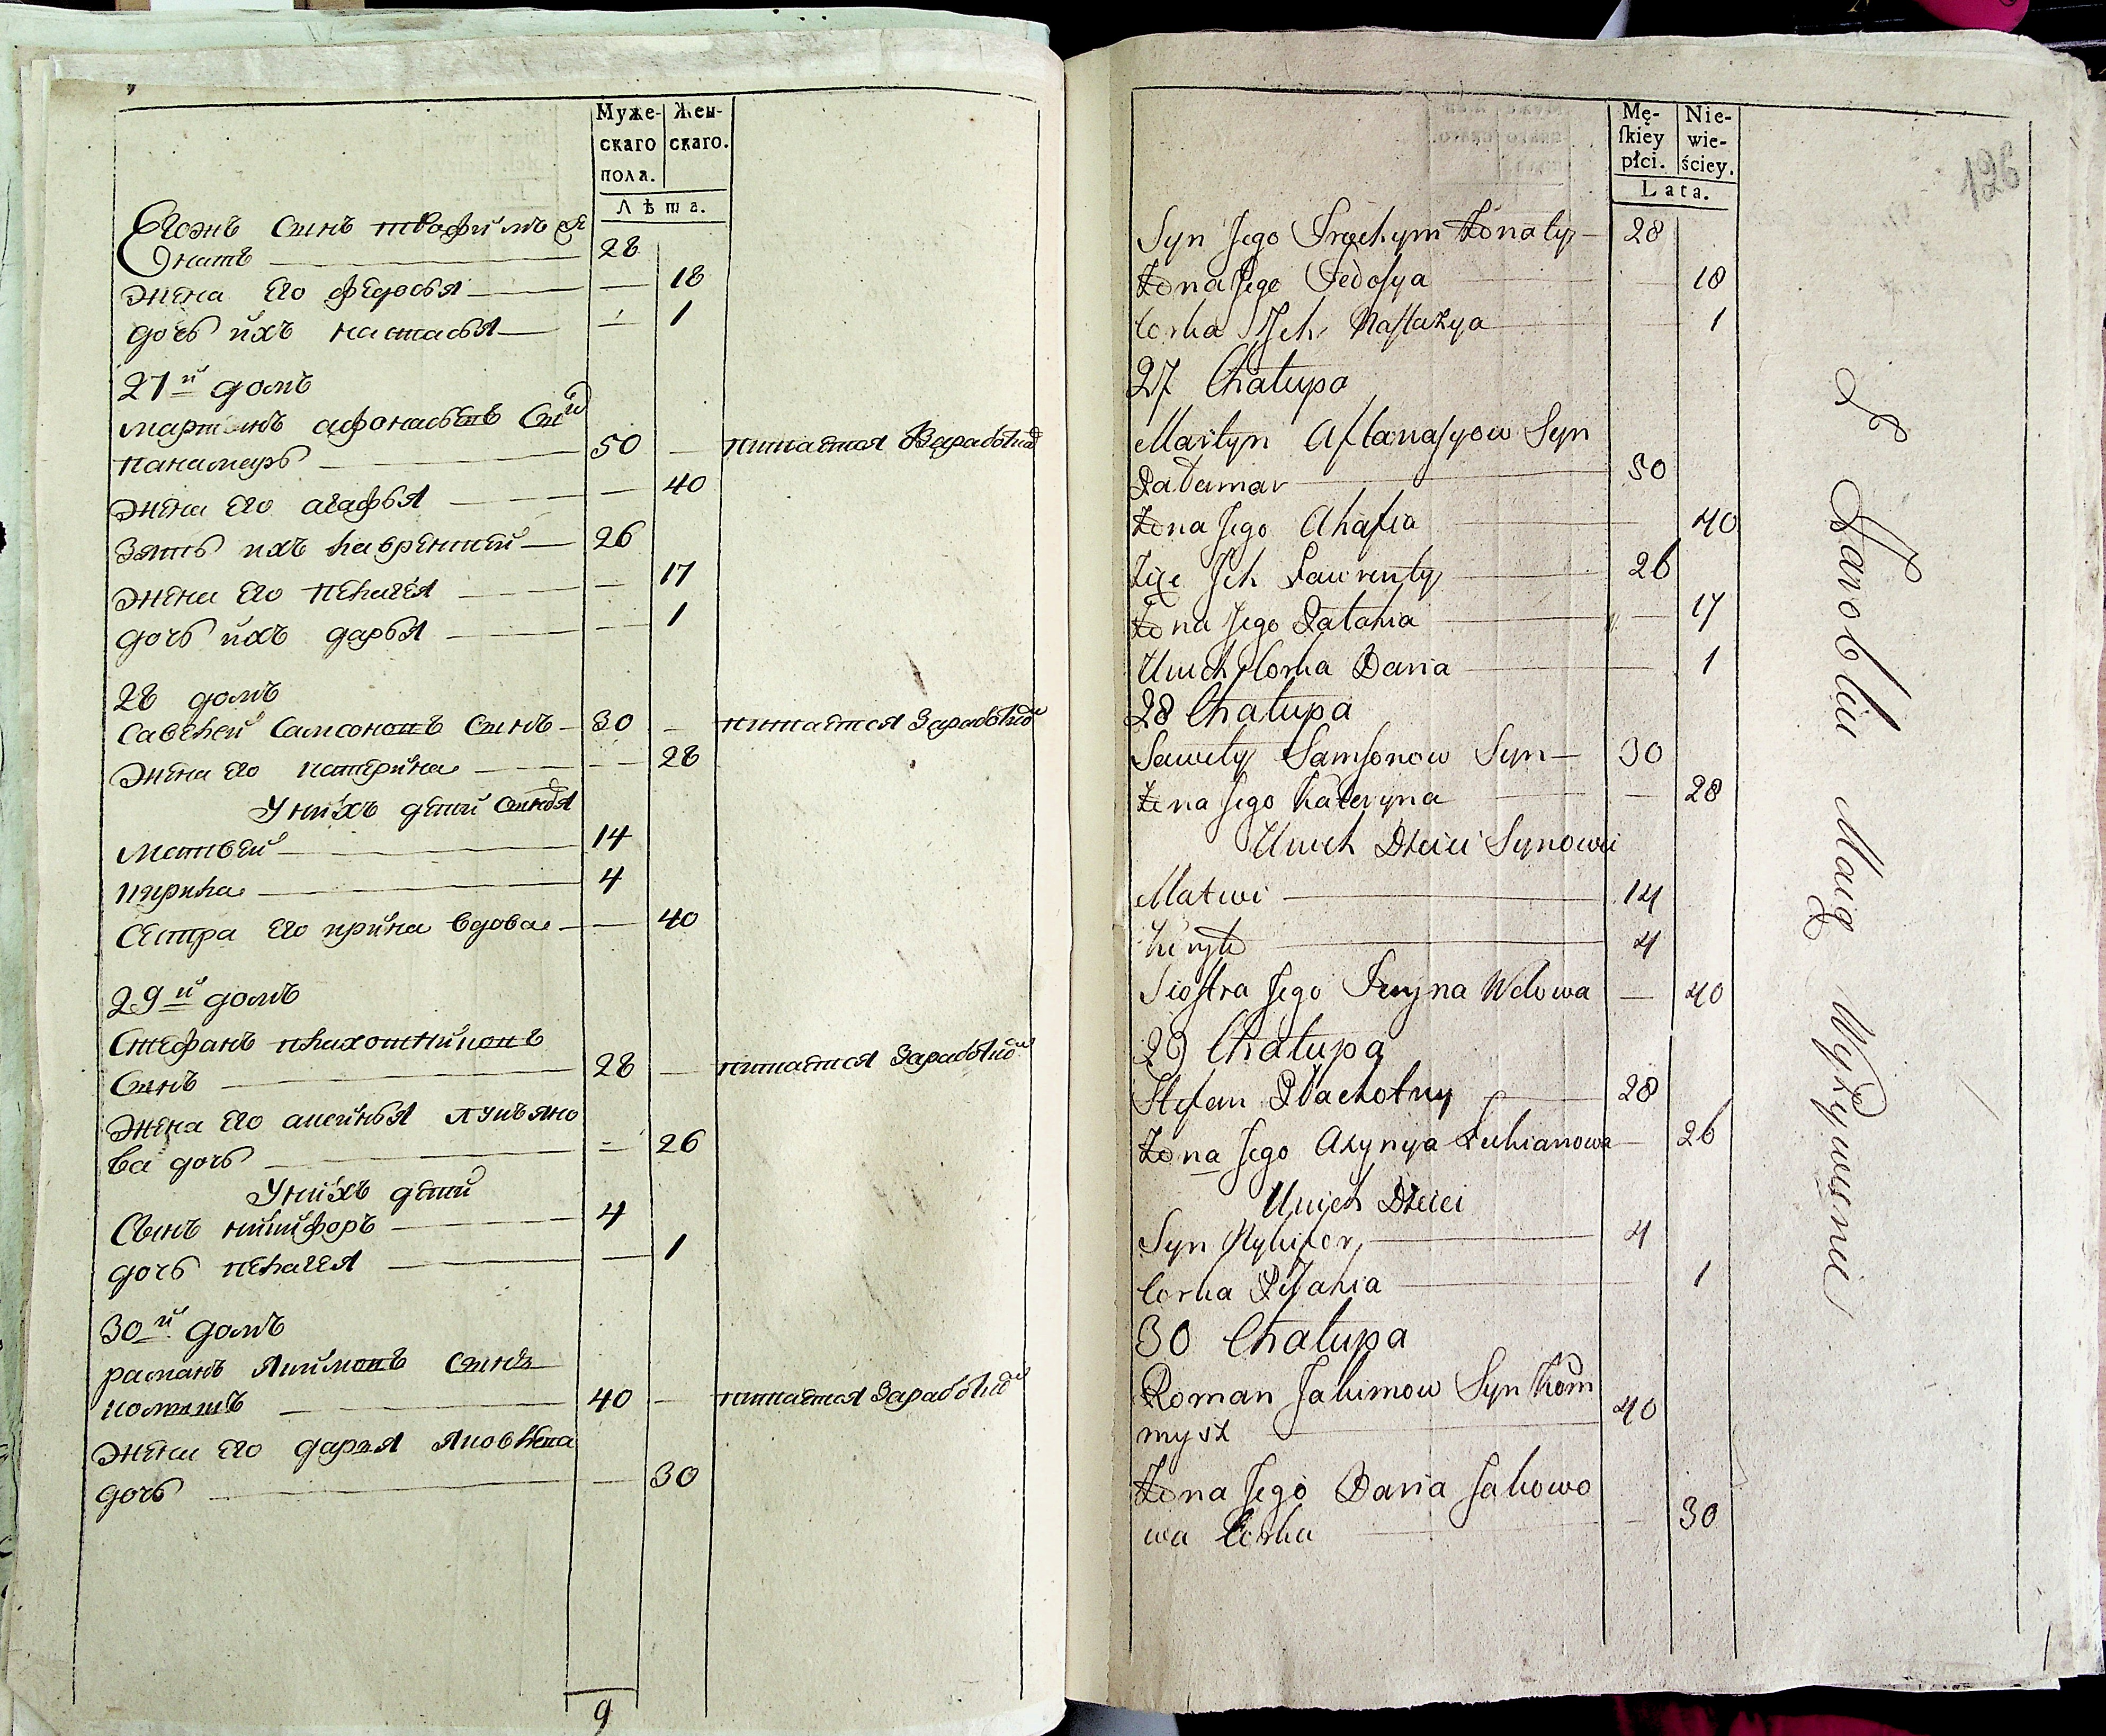 Муже-
скаго
пола.
Жен-
скаго.
Лѣта.
Егожъ сынъ трафимъ же
натъ 28
жена его федосья 18
дочь ихъ настасья 1
27й домъ
мартынъ афонасьевъ сынъ
панамарь 50 питается Заработкой
жена его агафья 40
зять ихъ лаврентей 26
жена его пелагея 17
дочь ихъ дарья 1
28 домъ
савелей самсоновъ сынъ 30 питается Заработкой
жена его катерина 28
У нихъ дети сыновья
матвей 14
кирила 4
сестра его ирина вдова 40
29й домъ
стефанъ плахотниковъ
сынъ 28 питается Заработкой
жена его аксинья лукьяно
ва дочь 26
У нихъ дети
сынъ никифоръ 4
дочь пелагея 1
30й домъ
раманъ якимовъ сынъ
40 питается Заработкой
жена его дарья яковлева
дочь 30
9
Mę-
ſkiey
płci.
Nie-
wie-
ściey.
Lata.
126
Syn Jego Trochym Żonaty 28
Żona Jego Fedosya 18
Corka Jch Nastazya 1
27 Chałupa
Martyn Aftanasyow Syn
Padamar 50
Żona Jego Ahafia 40
Zięc Jch Lawrenty 26
Żona Jego Pałahia 17
Unich Corka Daria 1
28 Chałupa
Sawely Samsonow Syn 30
Żona Jego Kateryna 28
Unich Dzieci Synowie
Matwi 14
Kiryło 4
Siostra Jego Iryna Wdowa 40
29 Chałupa
Stefan Płachotny 28
Żona Jego Axynya Łukianowa 26
Unich Dzieci
Syn Nykifor 4
Corka Pełahia 1
30 Chałupa
Roman Jakimow Syn Kom
mysz 40
Żona Jego Daria Jakowo
wa Corka 30
Z Zarobku Maią Wyżywienie